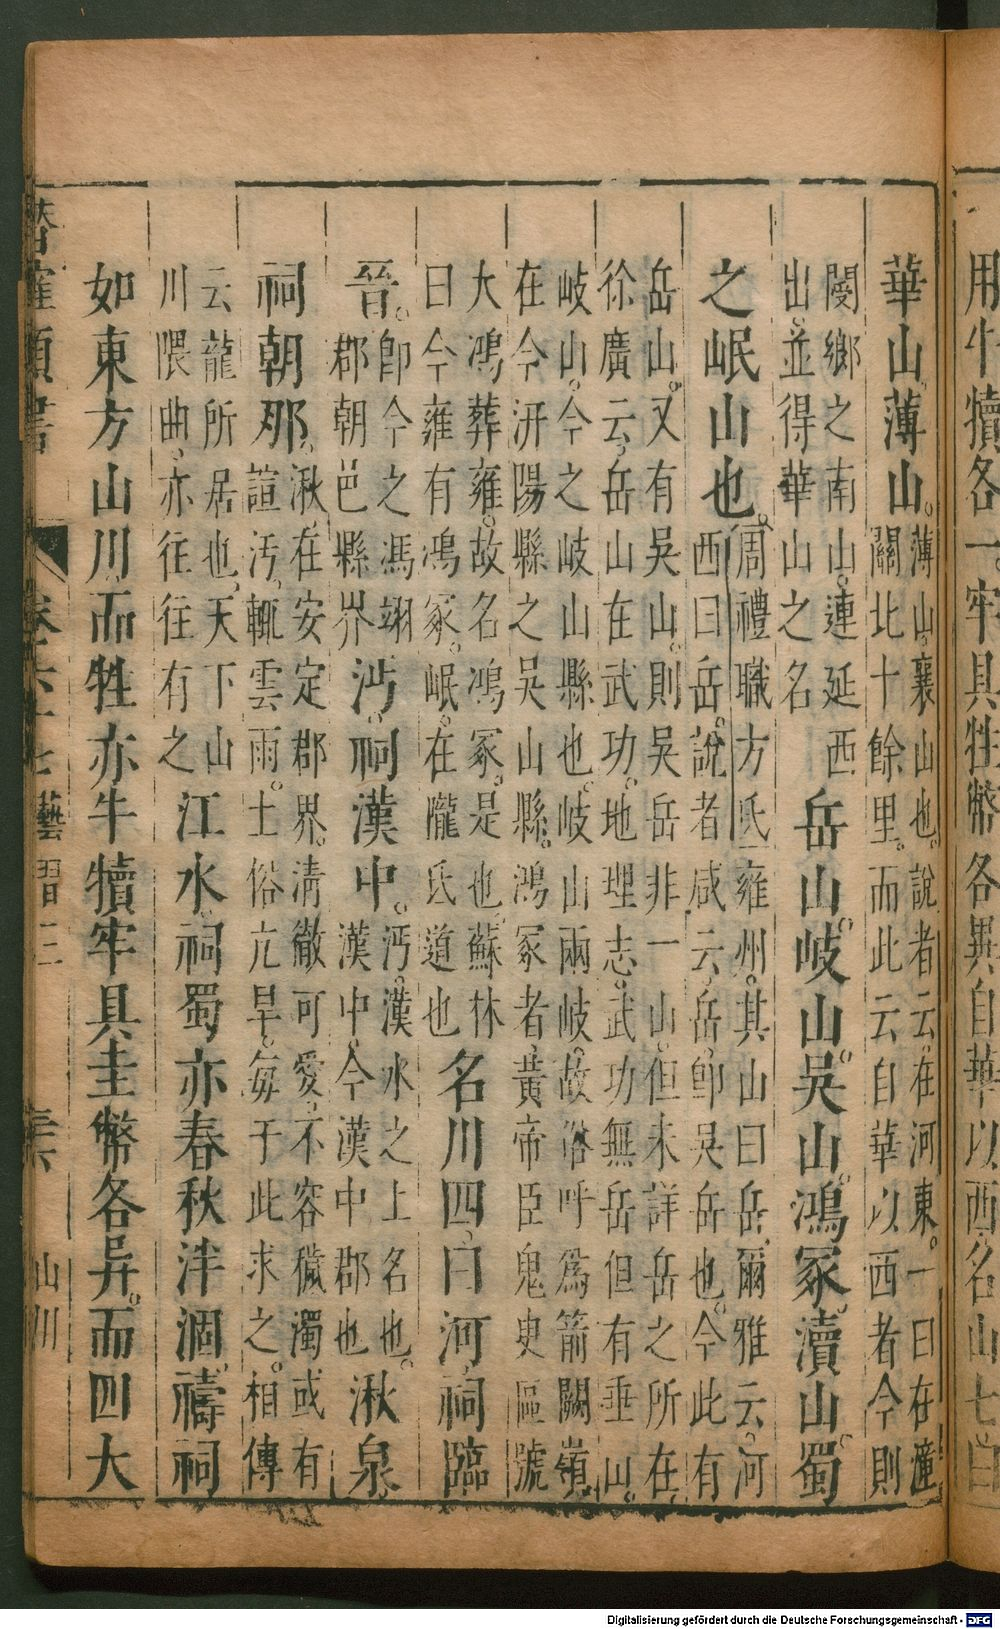 用牛犢各一牢具牲幣各異自華以西名山七曰
華山。薄山。
薄山襄山也。說者云在河東。一曰在潼
關北十餘里。而此云自華以西者今則
閿鄉之南山。連延西
出。並得華山之名
岳山。岐山。吳山。鴻冢。瀆山。蜀
之岷山也。
周禮職方氏雍州。其山曰岳。爾雅云。河
西曰岳。說者咸云岳。卽吳岳也。今此有
岳山。又有吳山。則吳岳非一山。但未詳岳之所在。
徐廣云。岳山在武功。地理志。武功無岳但有垂山。
岐山。今之岐山縣也。岐山兩岐。故俗呼爲箭闕嶺。
在今汧陽縣之吳山縣。鴻冢者。黃帝臣鬼史區號
大鴻葬雍。故名鴻冢。是也。蘇林
曰今雍有鴻冢。岷。在隴氐道也
名川四。曰河。祠臨
晉。
卽今之馮翊
郡朝邑縣界
沔。祠漢中。
沔。漢水之上名也。
漢中。今漢中郡也
湫泉。
祠朝那。
湫。在安定郡界。清徹可愛。不容穢濁。或有
諠汚。輒雲雨。土俗亢旱。每于此求之。相傳
云龍所居也。天下山
川隈曲。亦往往有之
江水。祠蜀亦春秋泮涸。禱祠
如東方山川。而牲亦牛犢牢具圭幣各异。而四大
潛確類書
卷六十七
藝習三
三六
山川
Digitalisierung gefördert durch die Deutsche Forschungsgemeinschaft - DFG